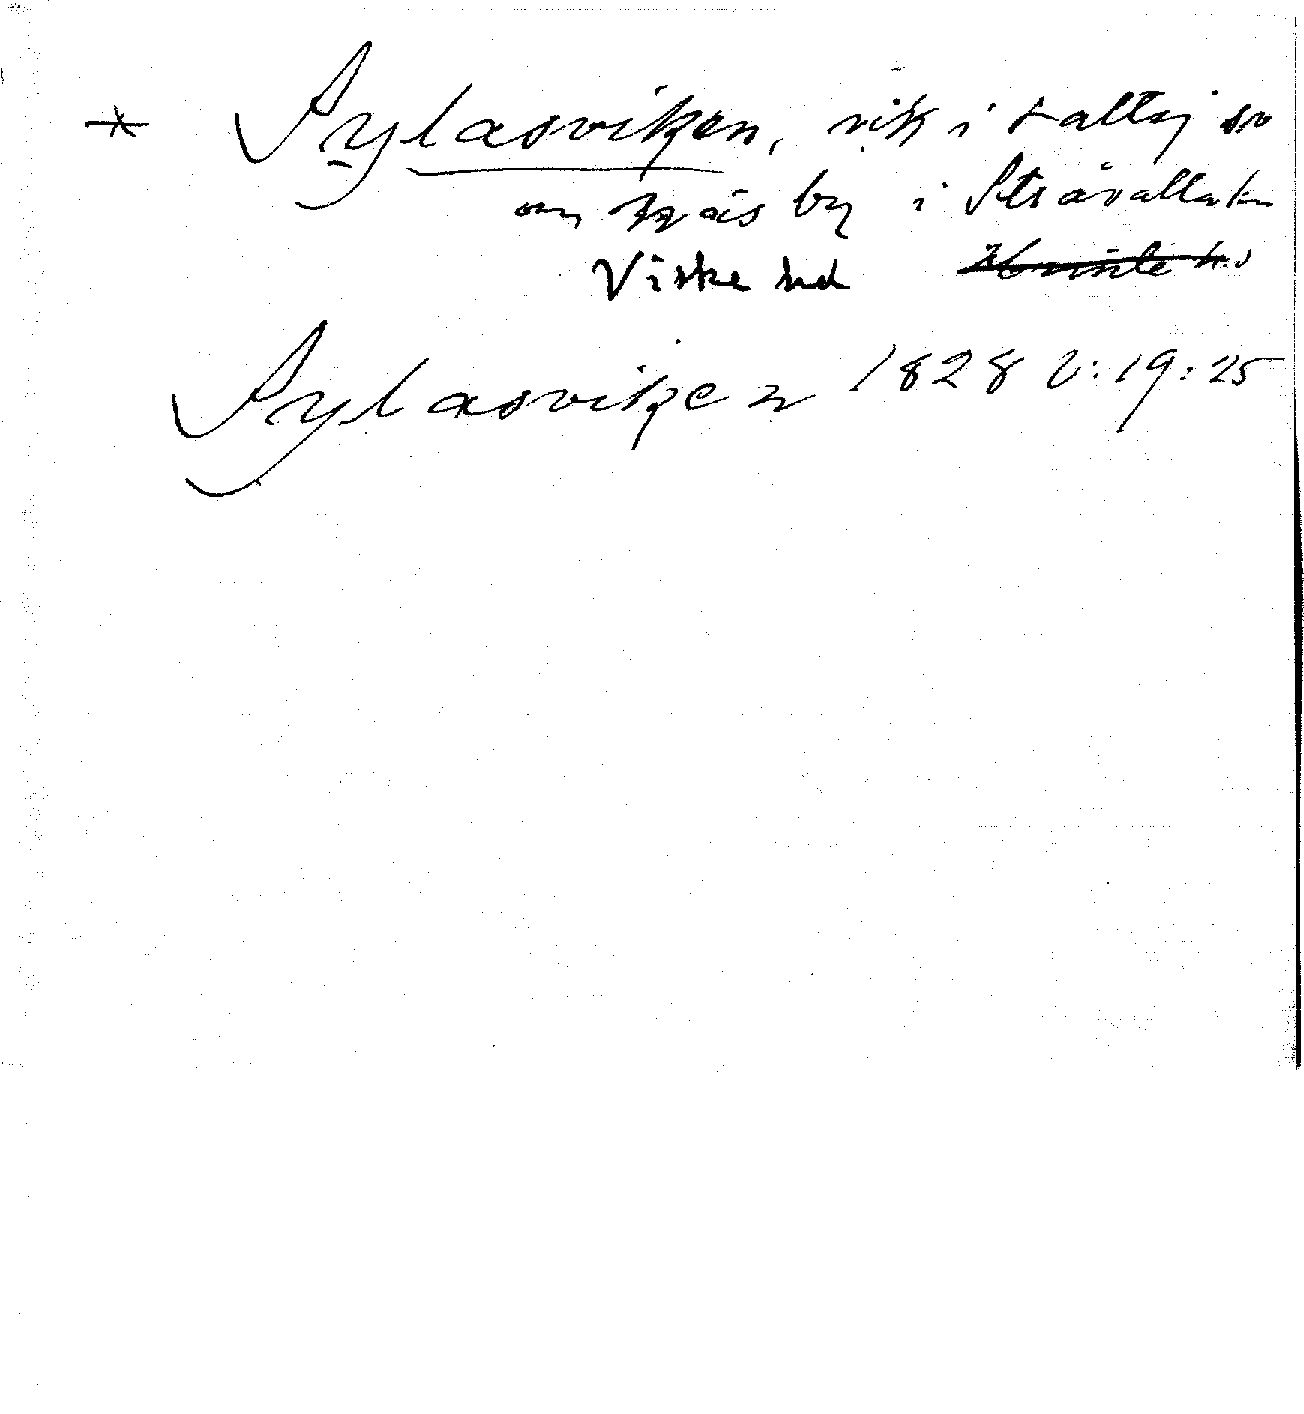 * Sylasviken, vik i Kattej sv
om Näs by i Stråvalla sn
Viske hd
Sylasviken 1828 v:19:25